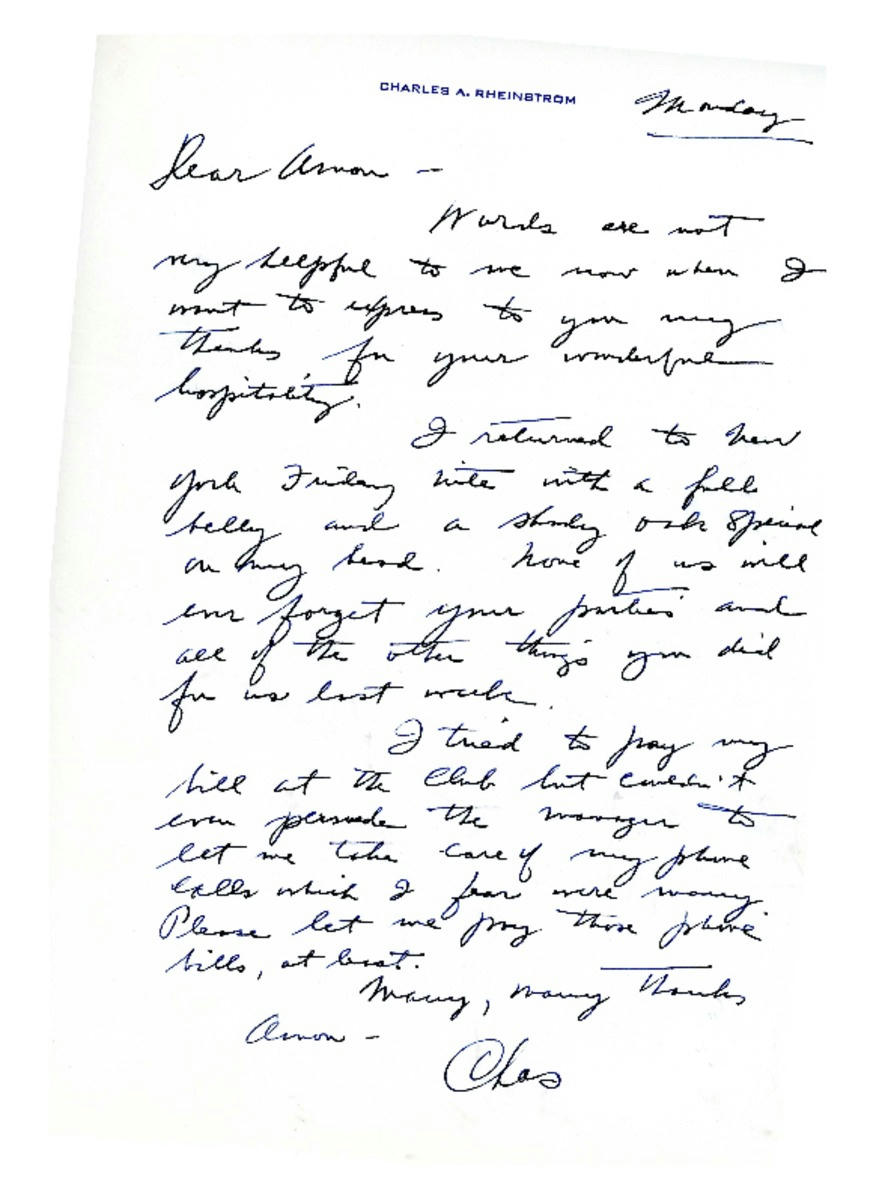 CHARLES A. RHEINSTROM
Monday
Dear Amon -
Words are not
very helpful to me now when I
want to express to you my
thanks for your wonderful
hospitality.
I returned to New
York Friday nite with a full
belly and a Shady Oak Special
on my head. None of us will
ever forget your parties and
all of the other things you did
for us last week.
I tried to pay my
bill at the Club but couldn't
even persuade the manager to
let me take care of my phone
calls which I fear were many
Please let me pay those phone
bills, at least.
Many, many thanks
Amon -
Chas